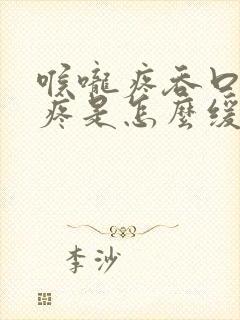 喉嚨疼吞口
疼是怎麼缓
李沙